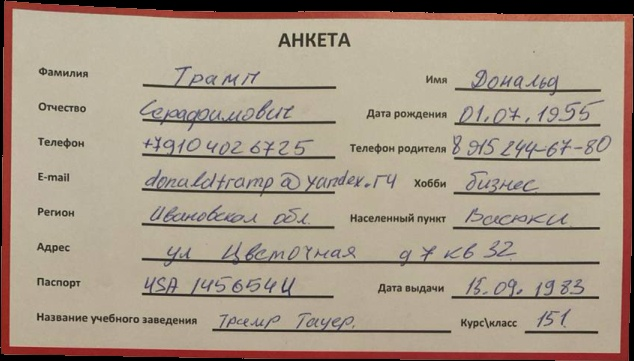 АНКЕТА
Фамилия Трамп Имя Дональд
Отчество Серафимович Дата рождения 01.07.1955
Телефон +79104026725 Телефон родителя 8 915 244-67-80
E-mail donaldtramp@yandex.ru Хобби бизнес
Регион Ивановская обл. Населенный пункт Васюки
Адрес ул Цветочная д 7 кв 32
Паспорт USA 145654U Дата выдачи 15.09.1983
Название учебного заведения Трамр Тауер. Курс\класс 151